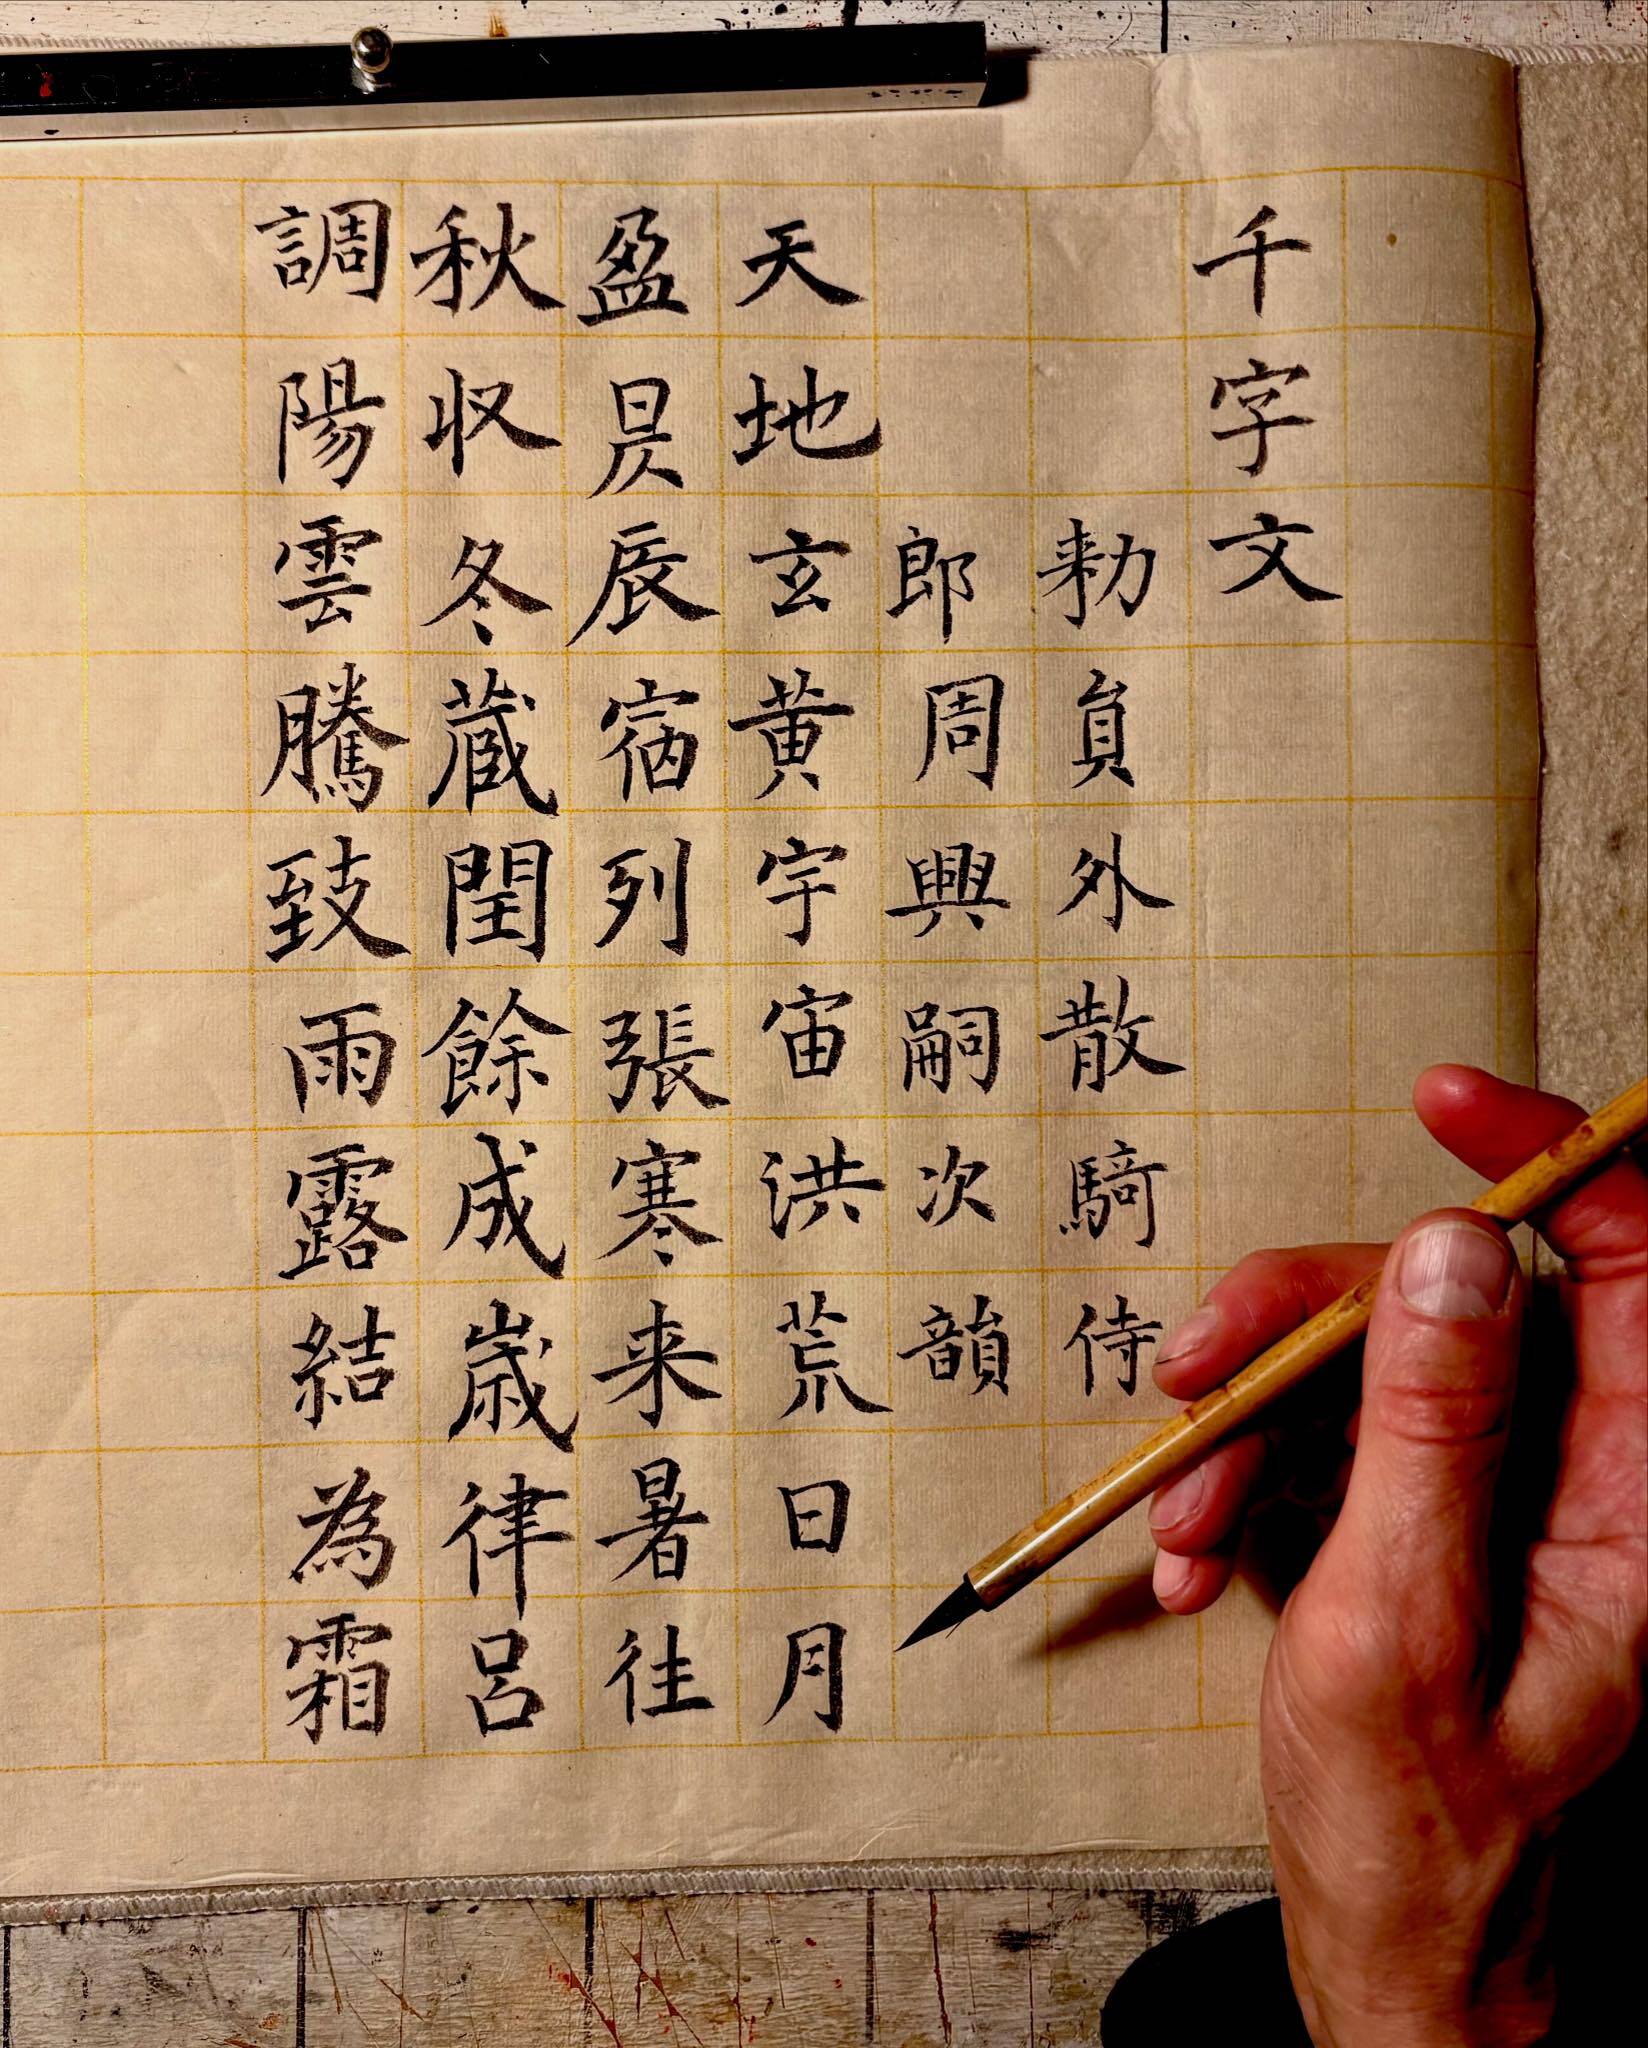 千字文
勑員外散騎侍
郎周興嗣次韻
天地玄黄宇宙洪荒日月
盈昃辰宿列張寒来暑往
秋収冬蔵閏餘成歳律呂
調陽雲騰致雨露結為霜